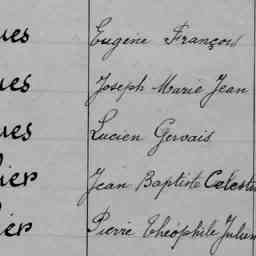 ues Eugène François
ues Joseph Marie Jean
ues Lucien Gervais
ier Jean Baptiste Celestin
ier Pierre Théophile Julien